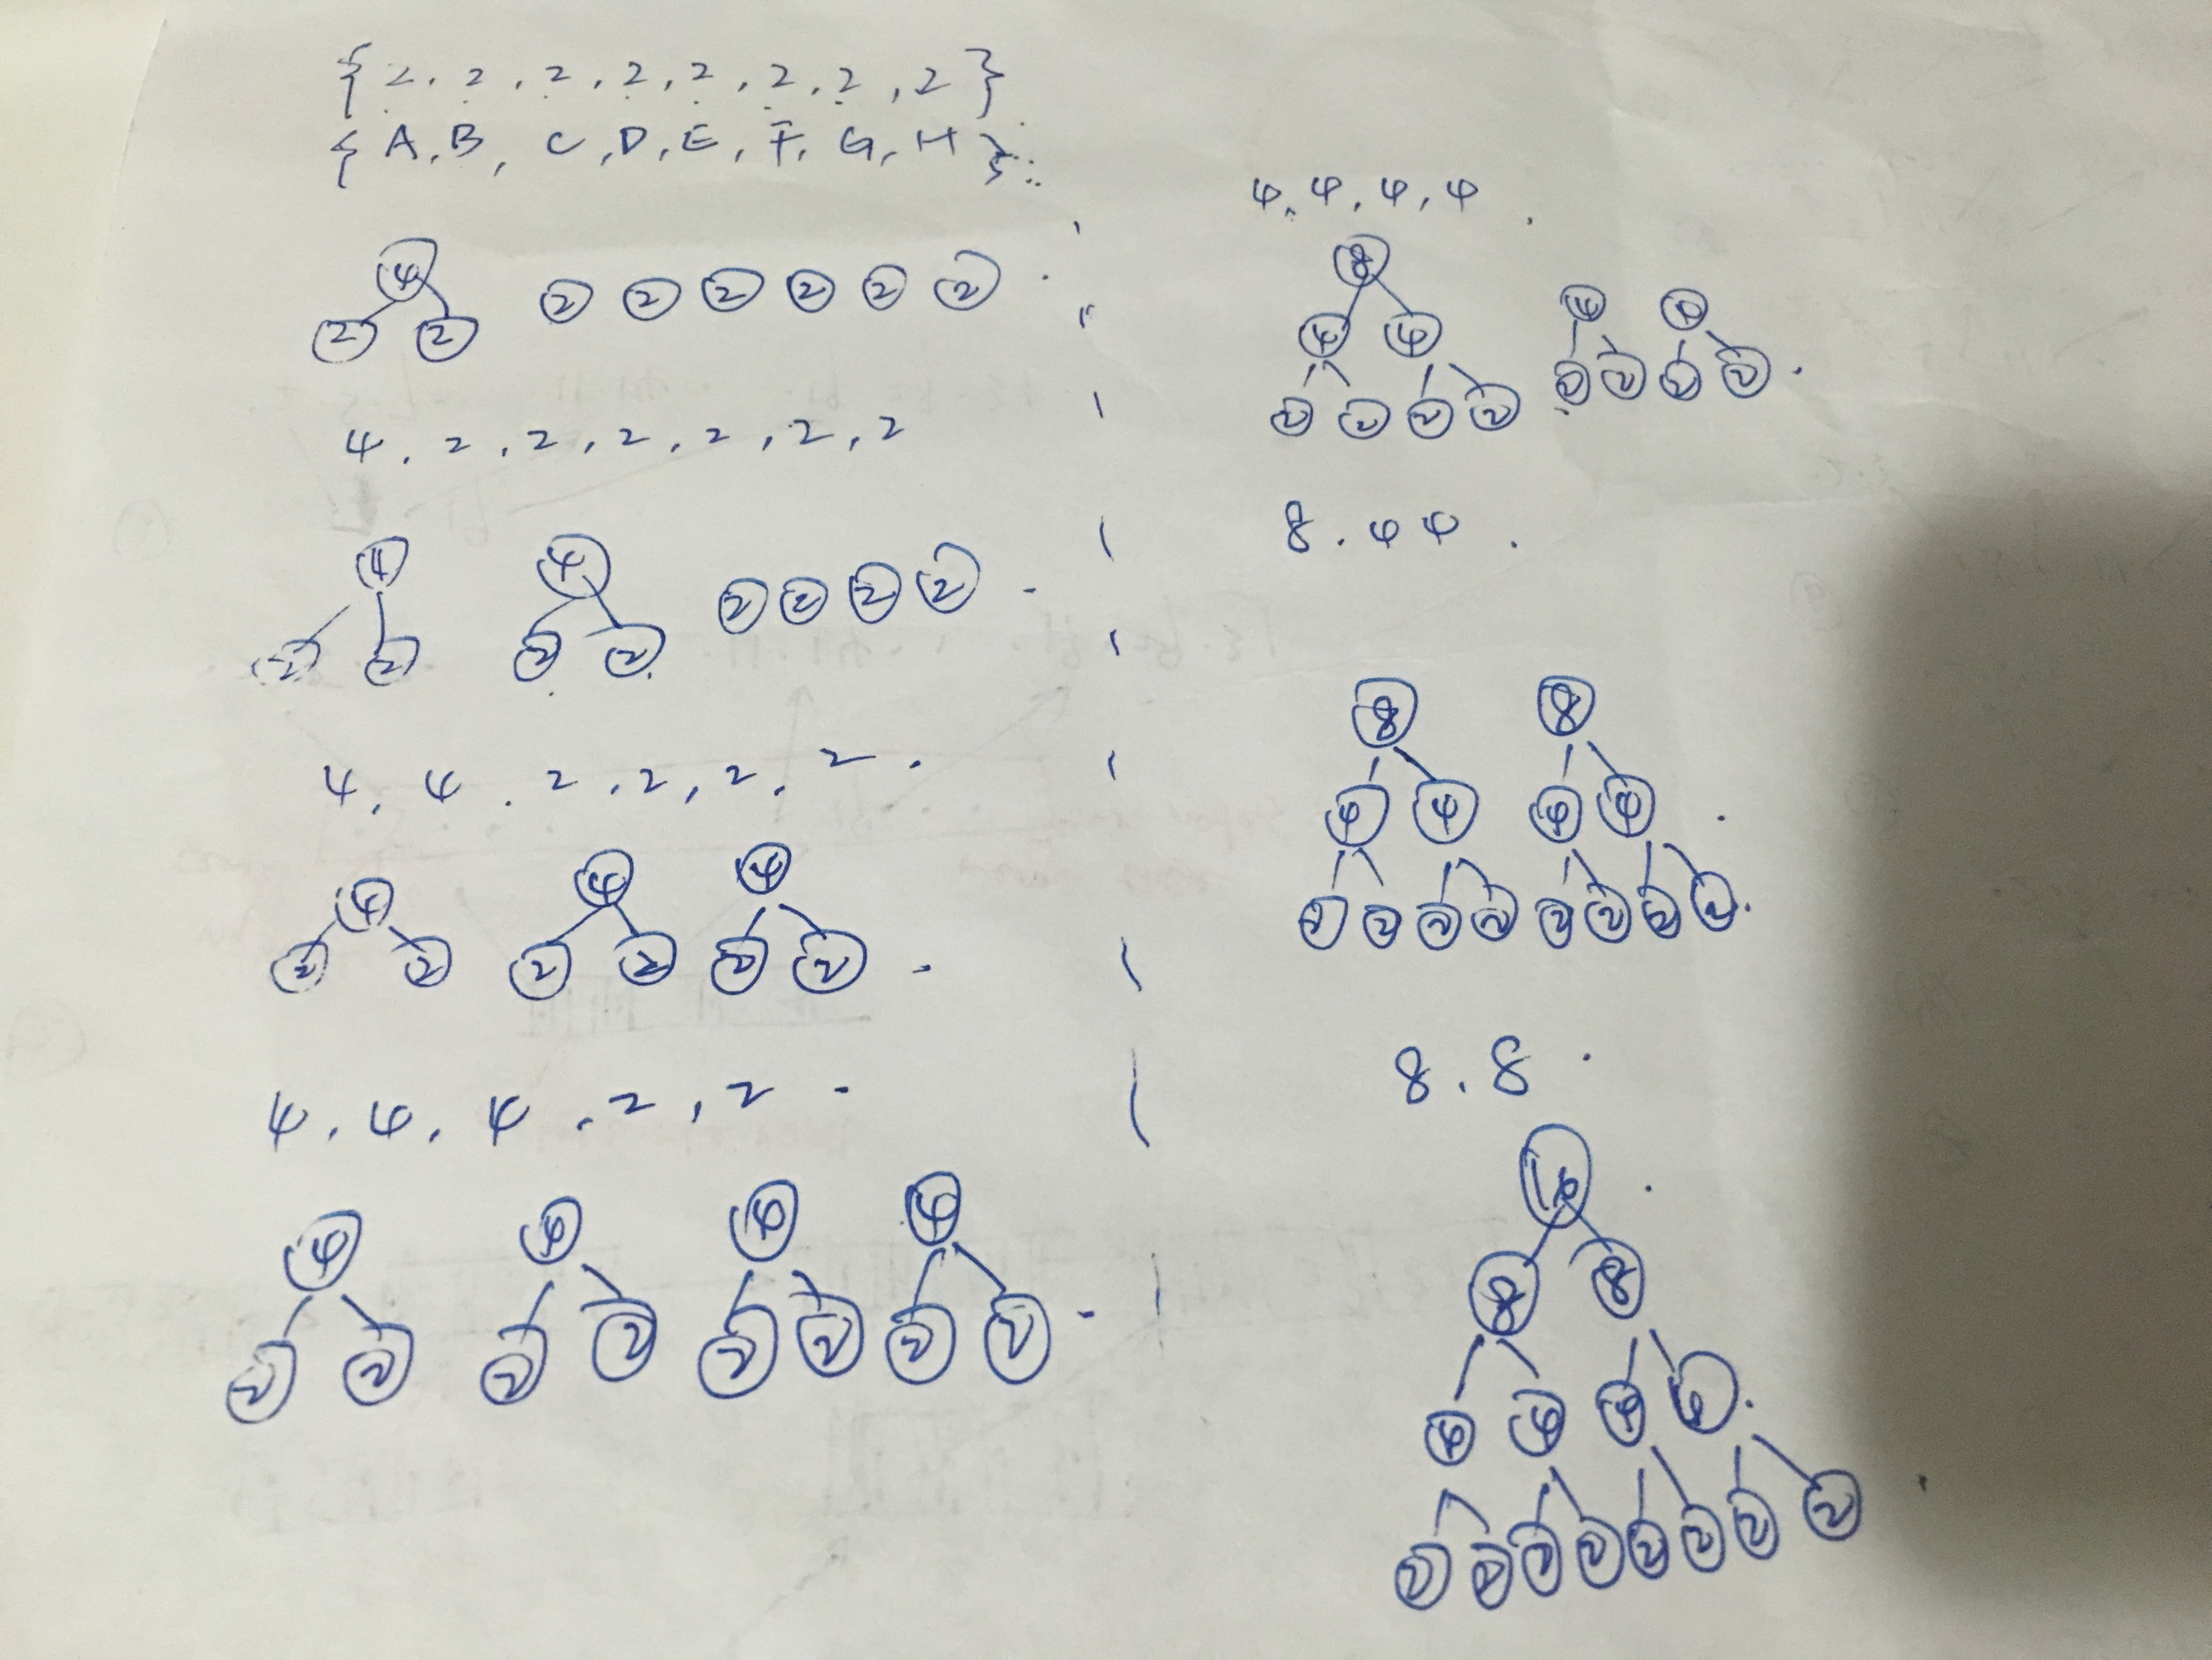 {2.2,2,2,2,2,2,2}
{A,B,C,D,E,F,G,H}
4
2 2 2 2 2 2 2 2
4.2,2,2,2,2,2
4 4 2 2 2 2
2 2 2 2
4.4.2.2,2.2.
4 4 4
2 2 2 2 2 2
4.4.4.2,2.
4 4 4 4
2 2 2 2 2 2 2 2
4.4.4,4.
8
4 4 4 4
2 2 2 2 2 2 2 2
8.44.
8 8
4 4 4 4
2 2 2 2 2 2 2 2
8.8.
16
8 8
4 4 4 4
2 2 2 2 2 2 2 2